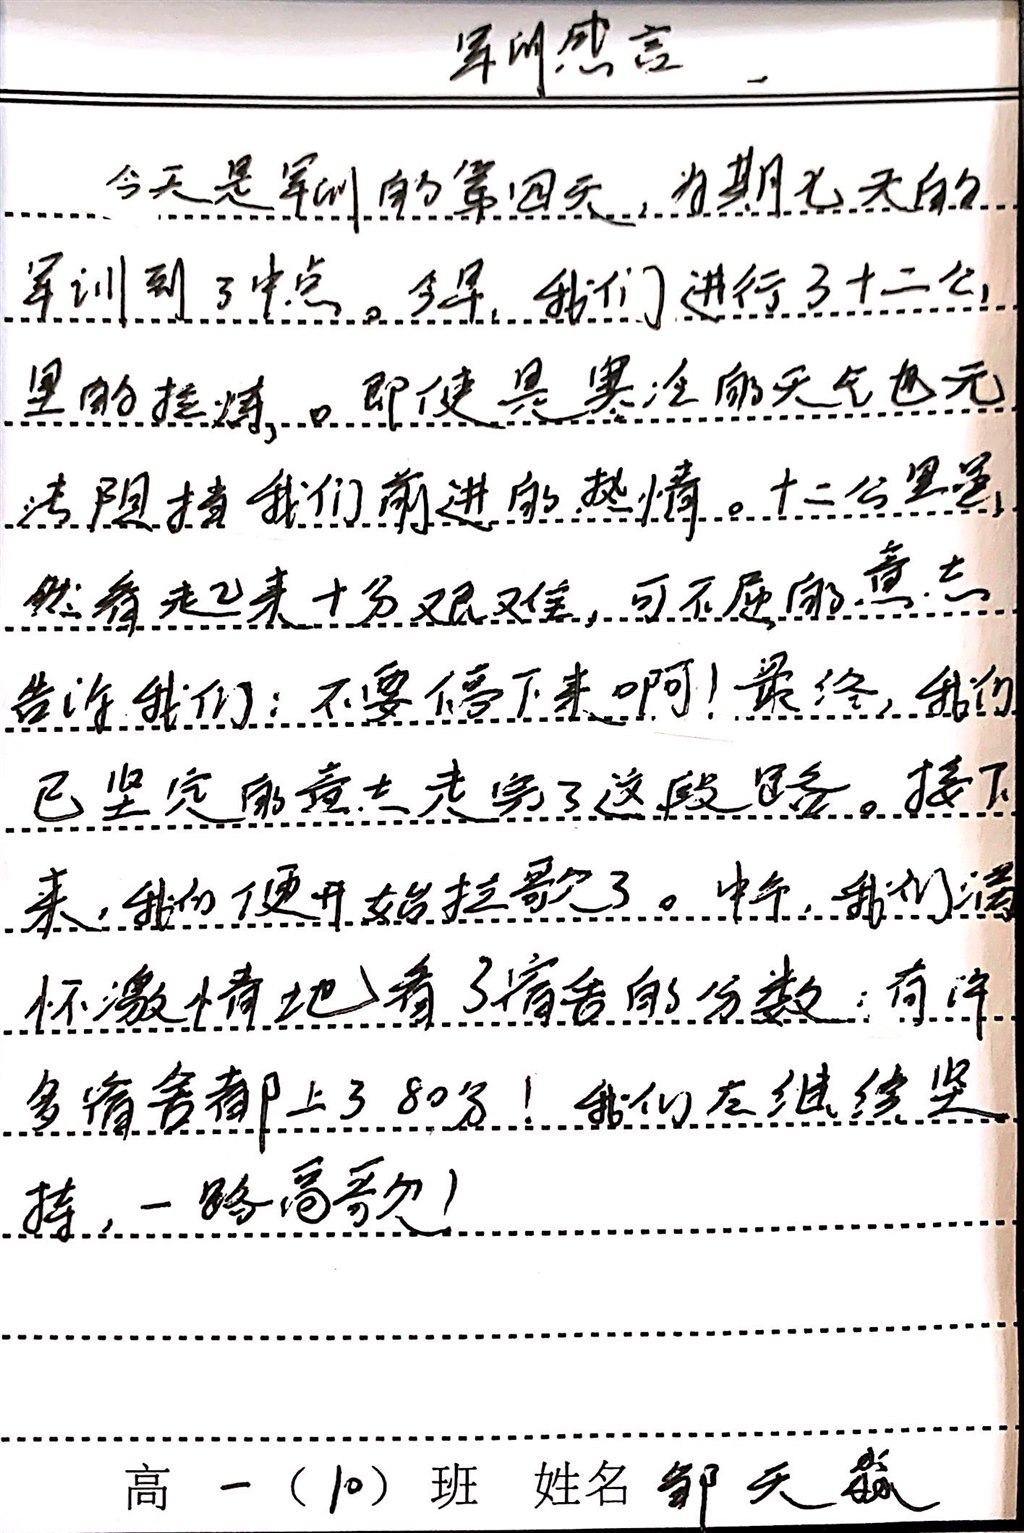 军训感言
今天是军训的第四天,为期七天的
军训到了中点。今早,我们进行了十二公
里的拉练,。即使是寒冷的天气也无
法阻挡我们前进的热情。十二公里虽
然看起来十分艰难,可不屈的意志
告诉我们:不要停下来啊!最终,我们
已坚定的意志走完了这段路。接下
来,我们便开始拉歌了。中午,我们满
怀激情地看了宿舍的分数:有许
多宿舍都上了80分!我们在继续坚
持,一路高歌!
高一(10)班 姓名 邹天